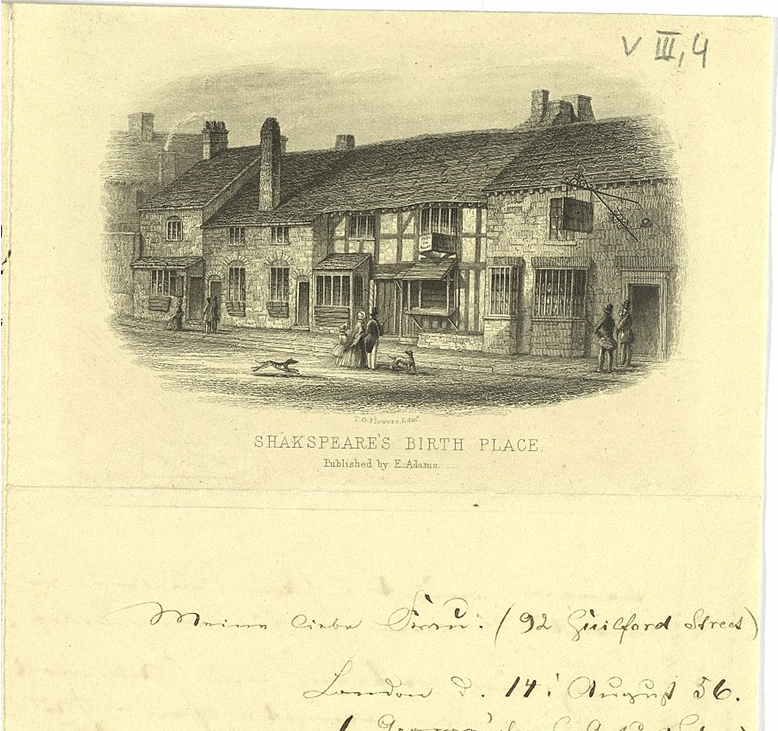 V III, 4
T.G. Flowers, Edinr.
SHAKSPEARE'S BIRTH PLACE.
Published by E. Adams.
Meine liebe Frau! (92 Guilford Street)
London d. 14! August 56.